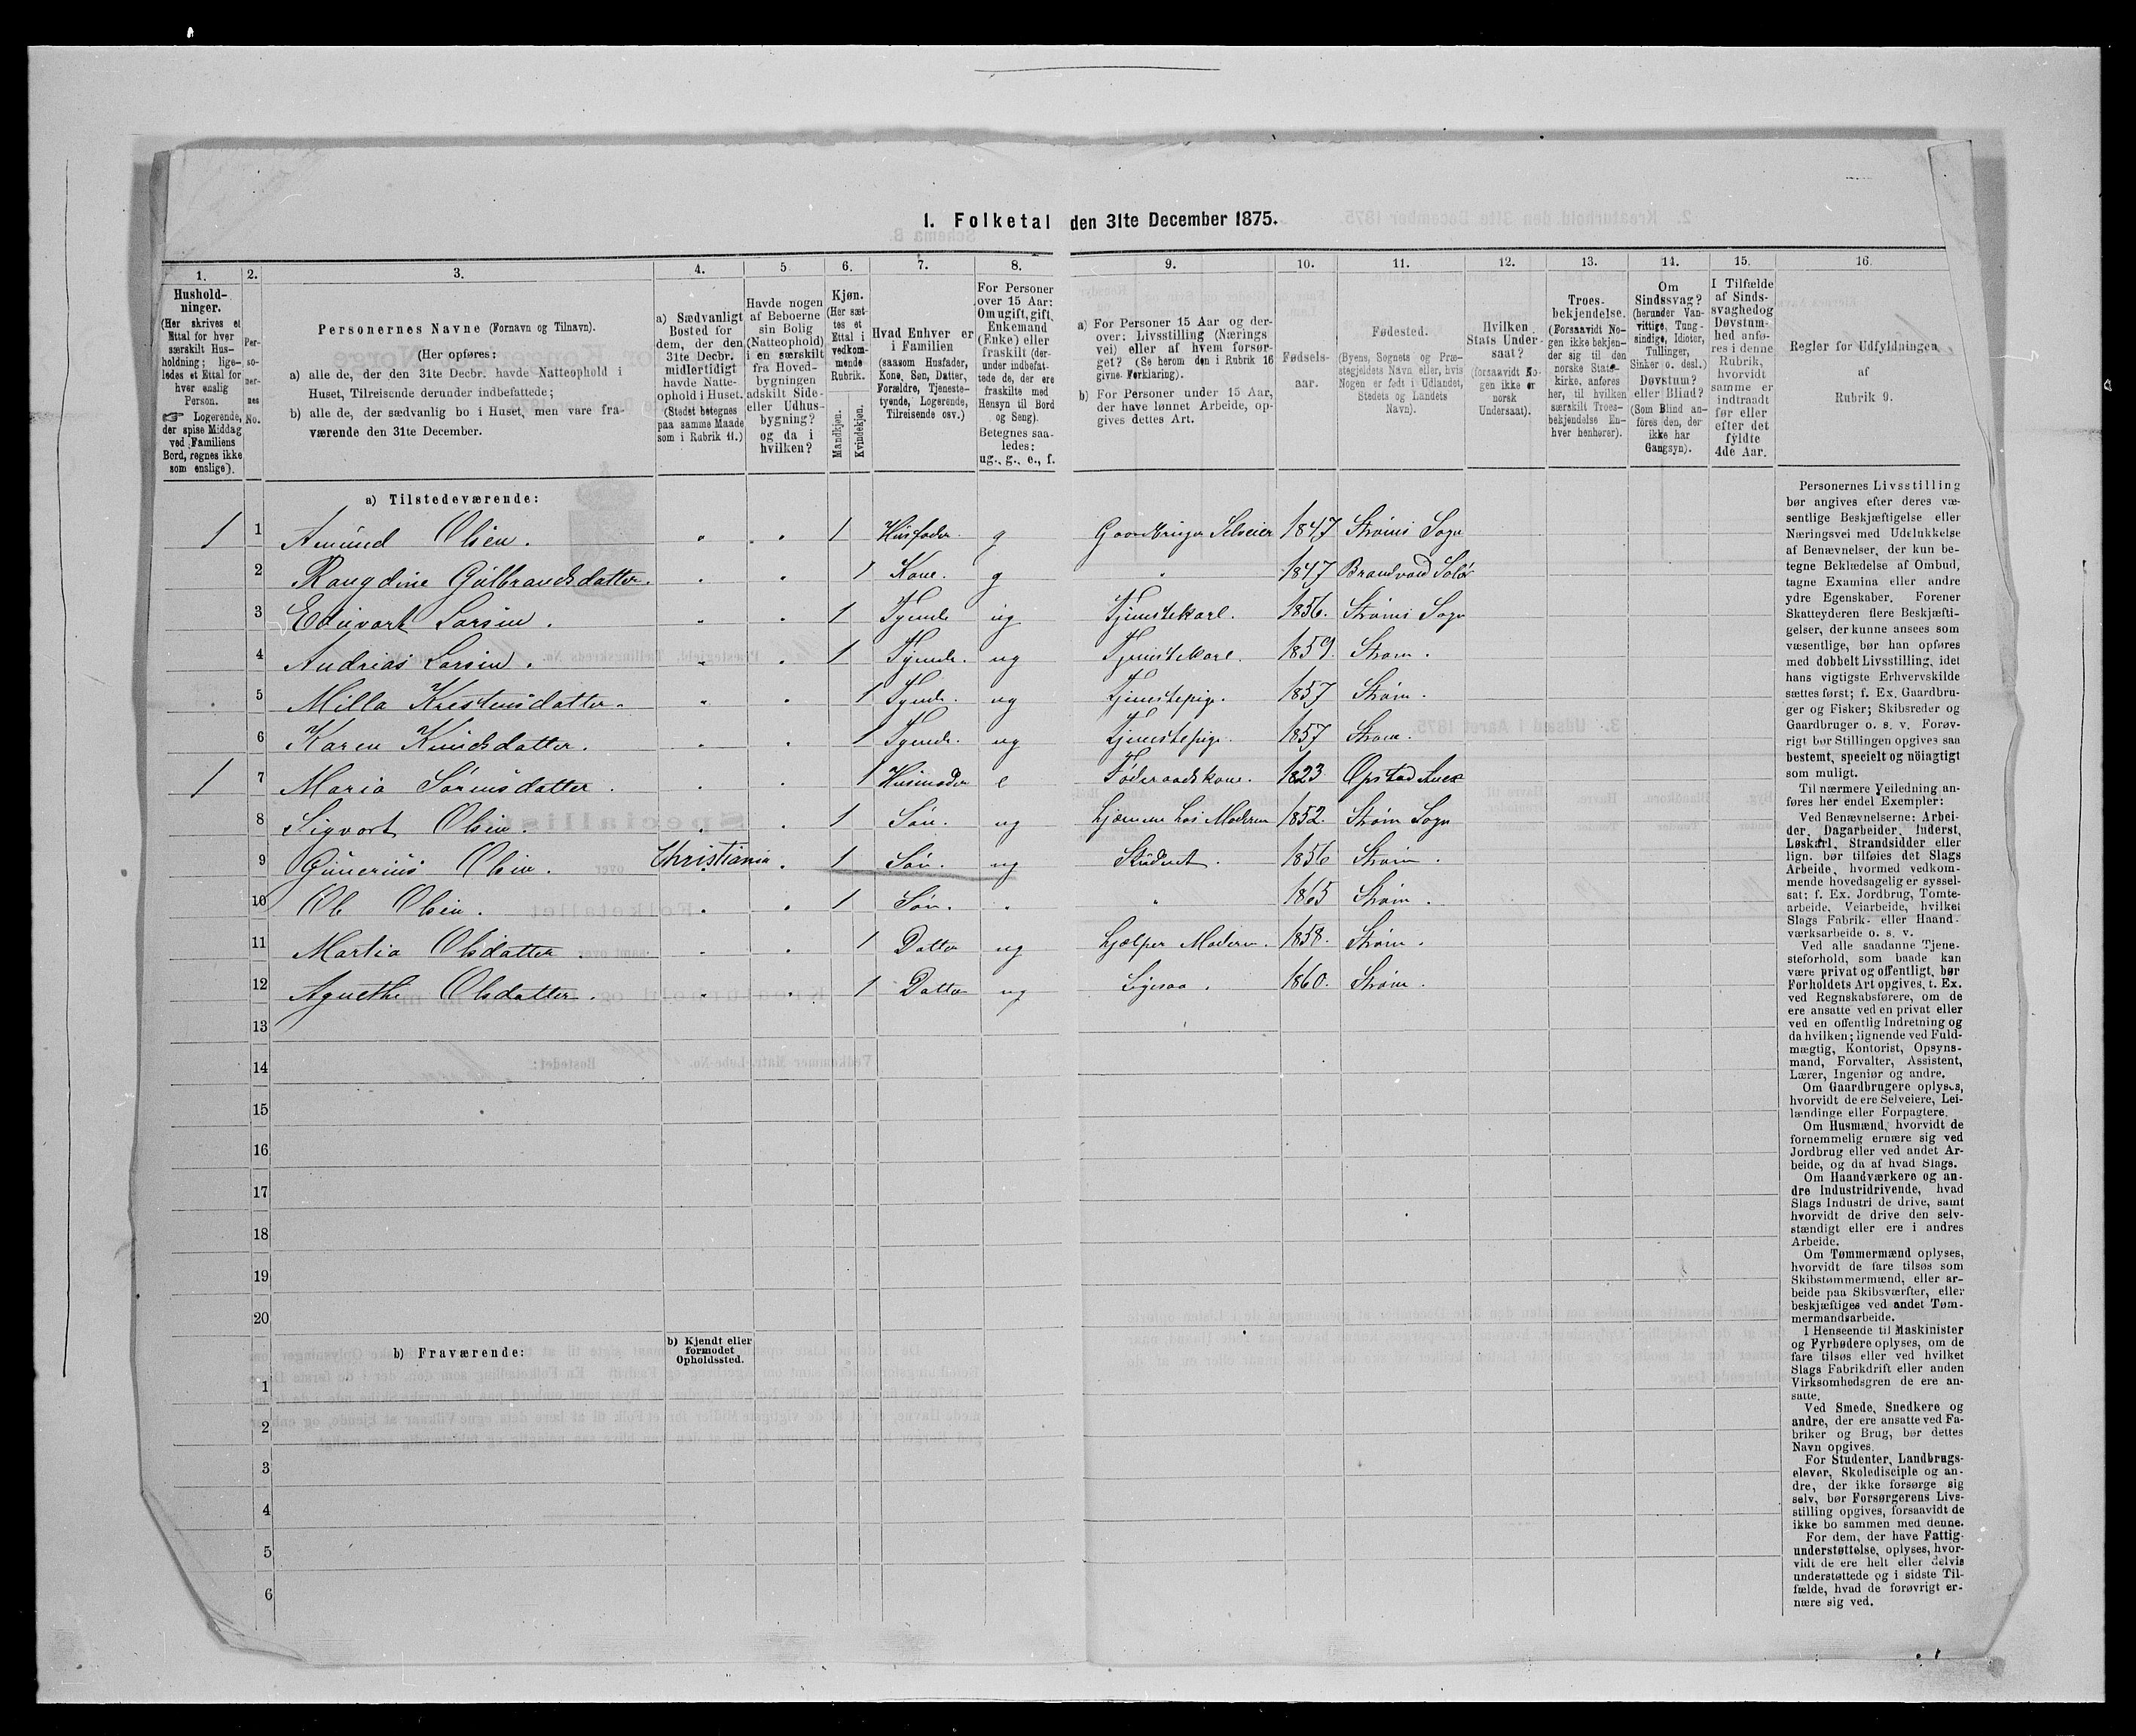 1. Folketal den 31te December 1875.
1. 2. 3. 4. 5. 6. 7. 8. 9. 10. 11. 12. 13. 14. 15. 16.
Hushold-
ninger.
(Her skrives et
Ettal for hver
særskilt Hus-
holdning; lige-
ledes et Ettal for
hver enslig
Person.
☞ Logerende,
der spise Middag
ved Familiens
Bord, regnes ikke
som enslige).
Per-
so-
ner-
nes
No.
Personernes Navne (Fornavn og Tilnavn).
(Her opføres:
a) alle de, der den 31te Decbr. havde Natteophold i
Huset, Tilreisende derunder indbefattede;
b) alle de, der sædvanlig bo i Huset, men vare fra-
værende den 31te December.
a) Sædvanligt
Bosted for
dem, der den
31te Decbr.
midlertidigt
havde Natte-
ophold i Huset.
(Stedet betegnes
paa samme Maade
som i Rubrik 11.)
Havde nogen
af Beboerne
sin Bolig
(Natteophold)
i en særskilt
fra Hoved-
bygningen
adskilt Side-
eller Udhus-
bygning?
og da i
hvilken?
Kjøn.
(Her sæt-
tes et
Ettal i
vedkom-
mende
Rubrik.
Mandkjøn.
Kvindekjøn.
Hvad Enhver er
i Familien
(saasom Husfader,
Kone, Søn, Datter,
Forældre, Tjeneste-
tyende, Logerende,
Tilreisende osv.)
For Personer
over 15 Aar:
Om ugift, gift,
Enkemand
(Enke) eller
fraskilt (der-
under indbefat-
tede de, der ere
fraskilte med
Hensyn til Bord
og Seng).
Betegnes saa-
ledes:
ug., g., e., f.
a) For Personer 15 Aar og der-
over: Livsstilling (Nærings
vei) eller af hvem forsør-
get? (Se herom den i Rubrik 16
givne Forklaring).
b) For Personer under 15 Aar,
der have lønnet Arbeide, op-
gives dettes Art.
Fødsels-
aar.
Fødested.
(Byens, Sognets og Præ-
stegjeldets Navn eller, hvis
Nogen er født i Udlandet,
Stedets og Landets
Navn).
Hvilken
Stats Under-
saat?
(forsaavidt No-
gen ikke er
norsk
Undersaat).
Troes-
bekjendelse.
(Forsaavidt No-
gen ikke bekjen-
der sig til den
norske Stats-
kirke, anføres
her, til hvilken
særskilt Troes-
bekjendelse En-
hver henhører).
Om
Sindssvag?
(herunder Van-
vittige, Tung-
sindige, Idioter,
Tullinger,
Sinker o. desl.)
Døvstum?
eller Blind?
(Som Blind an-
føres den, der
ikke har
Gangsyn).
I Tilfælde
af Sinds-
svaghed og
Døvstum-
hed anfø-
res i denne
Rubrik,
hvorvidt
samme er
indtraadt
før eller
efter det
fyldte
4de Aar.
Regler for Udfyldningen
af
Rubrik 9.
a) Tilstedeværende:
1 1 Amund Olsen. 1 Husfader. g Gaardbruger Selveier 1847 Strøms Sogn
2 Rangdine Gulbrandsdatter. 1 Kone. g 1847 Brandvold Solør
3 Edvart Larsen. 1 Tyende ug Tjenestekarl. 1856. Strøms Sogn
4 Andrias Larsen. 1 Tyende. ug Tjenestekarl. 1859. Strøm.
5 Milla Kristensdatter. 1 Tyende. ug Tjenestepige. 1857 Strøm.
6 Karen Knudsdatter. 1 Tyende. ug Tjenestepige 1857 Strøm.
1 7 Maria Sørensdatter. 1 Husmoder e Føderaadskone. 1823 Opstad
8 Sigvart Olsen. 1 Søn. ug Hjemme hos Moderen 1852. Strøm Sogn
9 Gunerius Olsen. Christiania 1 Søn. ug Student. 1856 Strøm.
10 Ole Olsen. 1 Søn. 1865 Strøm.
11 Martia Olsdatter. 1 Datter ug hjælper Moderen. 1858. Strøm.
12 Agnethe Olsdatter. 1 Datter ug Ligesaa. 1860. Strøm.
13
14
15
16
17
18
19
20
b) Fraværende:
b) Kjendt eller
formodet
Opholdssted.
1
2
3
4
5
6
Personernes Livsstilling
bør angives efter deres væ-
sentlige Beskjæftigelse eller
Næringsvei med Udelukkelse
af Benævnelser, der kun be-
tegne Beklædelse af Ombud,
tagne Examina eller andre
ydre Egenskaber. Forener
Skatteyderen flere Beskjæfti-
gelser, der kunne ansees som
væsentlige, bør han opføres
med dobbelt Livsstilling, idet
hans vigtigste Erhvervskilde
sættes først; f. Ex. Gaardbru-
ger og Fisker; Skibsreder og
Gaardbruger o. s. v. Forøv-
rigt bør Stillingen opgives saa
bestemt, specielt og nöiagtigt
som muligt.
Til nærmere Veiledning an-
føres her endel Exempler:
Ved Benævnelserne: Arbei-
der, Dagarbeider, Inderst,
Løskarl, Strandsidder eller
lign. bør tilføies det Slags
Arbeide, hvormed vedkom-
mende hovedsagelig er syssel-
sat; f. Ex. Jordbrug, Tomte-
arbeide, Veiarbeide, hvilket
Slags Fabrik- eller Haand-
værksarbeide o. s. v.
Ved alle saadanne Tjene-
steforhold, som baade kan
være privat og offentligt, bør
Forholdets Art opgives, t. Ex.
ved Regnskabsførere, om de
ere ansatte ved en privat eller
ved en offentlig Indretning og
da hvilken; lignende ved Fuld-
mægtig, Kontorist, Opsyns-
mand, Forvalter, Assistent,
Lærer, Ingeniør og andre.
Om Gaardbrugere oplyses,
hvorvidt de ere Selveiere, Lei-
lændinge eller Forpagtere.
Om Husmænd, hvorvidt de
fornemmelig ernære sig ved
Jordbrug eller ved andet Ar-
beide, og da af hvad Slags.
Om Haandværkere og an-
dre Industridrivende, hvad
Slags Industri de drive, samt
hvorvidt de drive den selv-
stændigt eller ere i andres
Arbeide.
Om Tømmermænd oplyses,
hvorvidt de fare tilsøs som
Skibstømmermænd, eller ar-
beide paa Skibsværfter, eller
beskjæftiges ved andet Tøm-
mermandsarbeide.
I Henseende til Maskinister
og Fyrbødere oplyses, om de
fare tilsøs eller ved hvilket
Slags Fabrikdrift eller anden
Virksomhedsgren de ere an-
satte.
Ved Smede, Snedkere og
andre, der ere ansatte ved Fa-
briker og Brug, bør dettes
Navn opgives.
For Studenter, Landbrugs-
elever, Skoledisciple og an-
dre, der ikke forsørge sig
selv, bør Forsørgerens Livs-
stilling opgives, forsaavidt de
ikke bo sammen med denne.
For dem, der have Fattig-
understøttelse, oplyses, hvor-
vidt de ere helt eller delvis
understøttede og i sidste Til-
fælde, hvad de forøvrigt er-
nære sig ved.